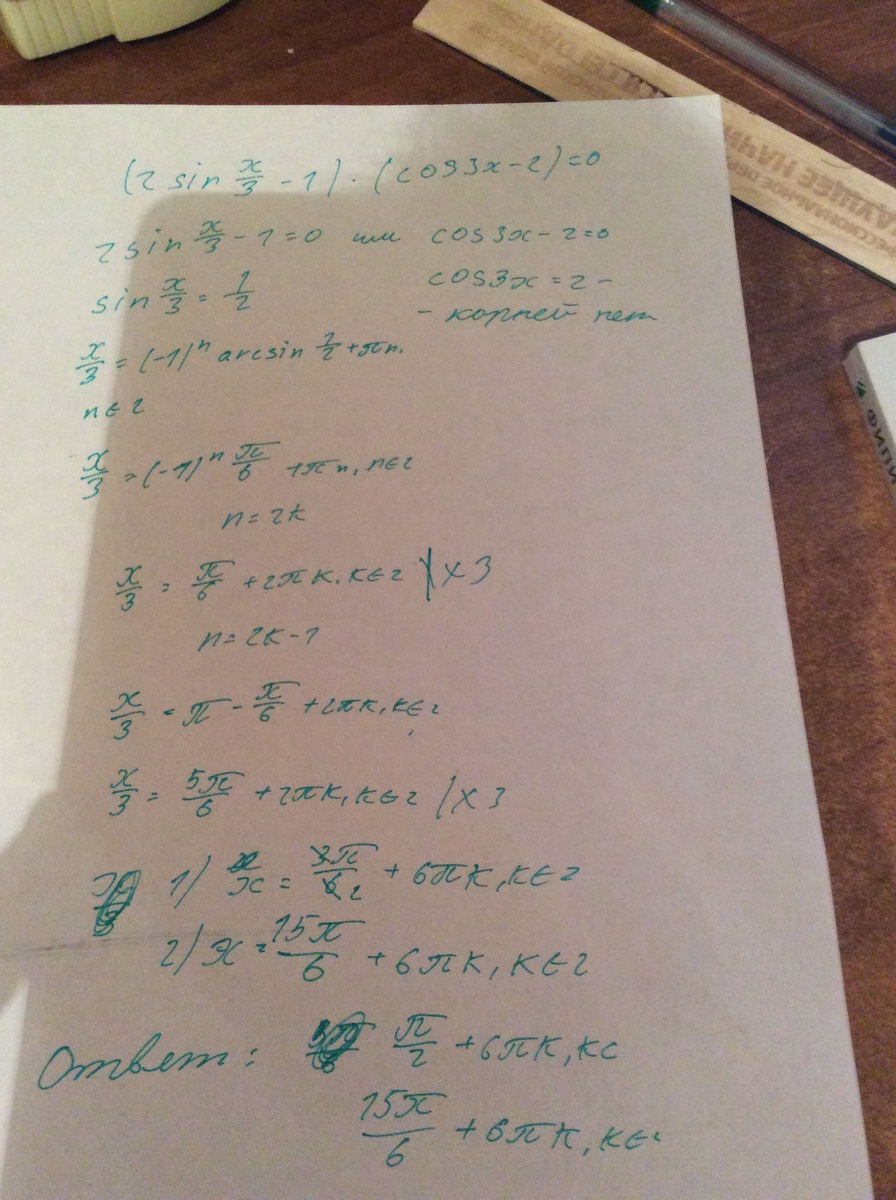 (2 sin x/3 - 1) · (cos3x - 2) = 0
2 sin x/3 - 1 = 0 или cos3x - 2 = 0
sin x/3 = 1/2 cos3x = 2 -
- корней нет
x/3 = (-1)ⁿ arcsin 1/2 + πn,
n∈Z
x/3 = (-1)ⁿ π/6 + πn, n∈Z
n = 2k
x/3 = π/6 + 2πk, k∈Z | x 3
n = 2k - 1
x/3 = π - π/6 + 2πk, k∈Z
x/3 = 5π/6 + 2πk, k∈Z | x 3
1) x = 3π/6 2 + 6πk, k∈Z
2) x = 15π/6 + 6πk, k∈Z
Ответ: π/2 + 6πk, k∈
15π/6 + 6πk, k∈Z